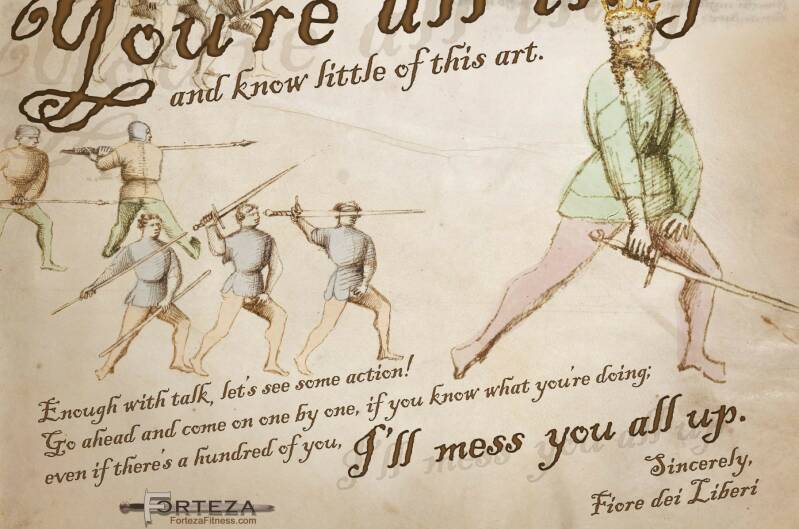 You're all
and know little of this art.
Enough with talk, let's see some action!
Go ahead and come on one by one, if you know what you're doing;
even if there's a hundred of you, I'll mess you all up.
Sincerely,
Fiore dei Liberi
FORTEZA
FortezaFitness.com